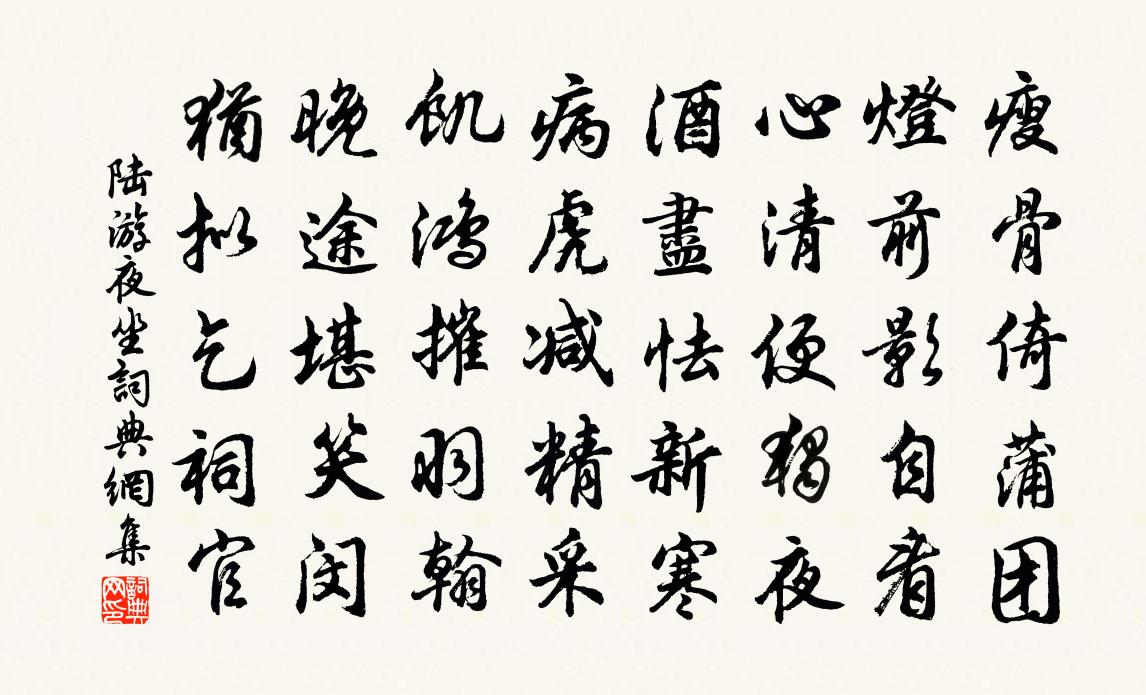 瘦骨倚蒲团
燈前影自看
心清便獨夜
酒盡怯新寒
病虎减精采
飢鴻摧羽翰
晚途堪笑闵
猶拟乞祠官
陆游夜坐詞典網集
詞典网印